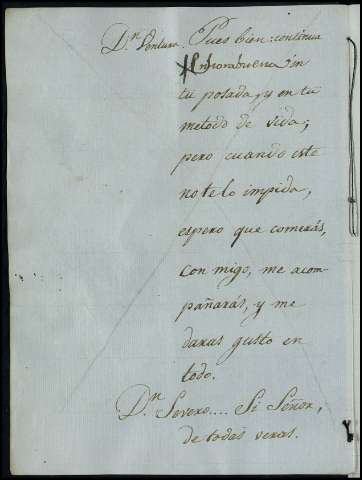 D.n Ventura. Pues bien: continua
enhorabuena en
tu posada, y en tu
metodo de vida;
pero cuando este
no te lo impida,
espero que comerás,
con migo, me acom-
pañarás, y me
daras gusto en
todo.
D.n Severo.... Si Señor,
de todas veras.